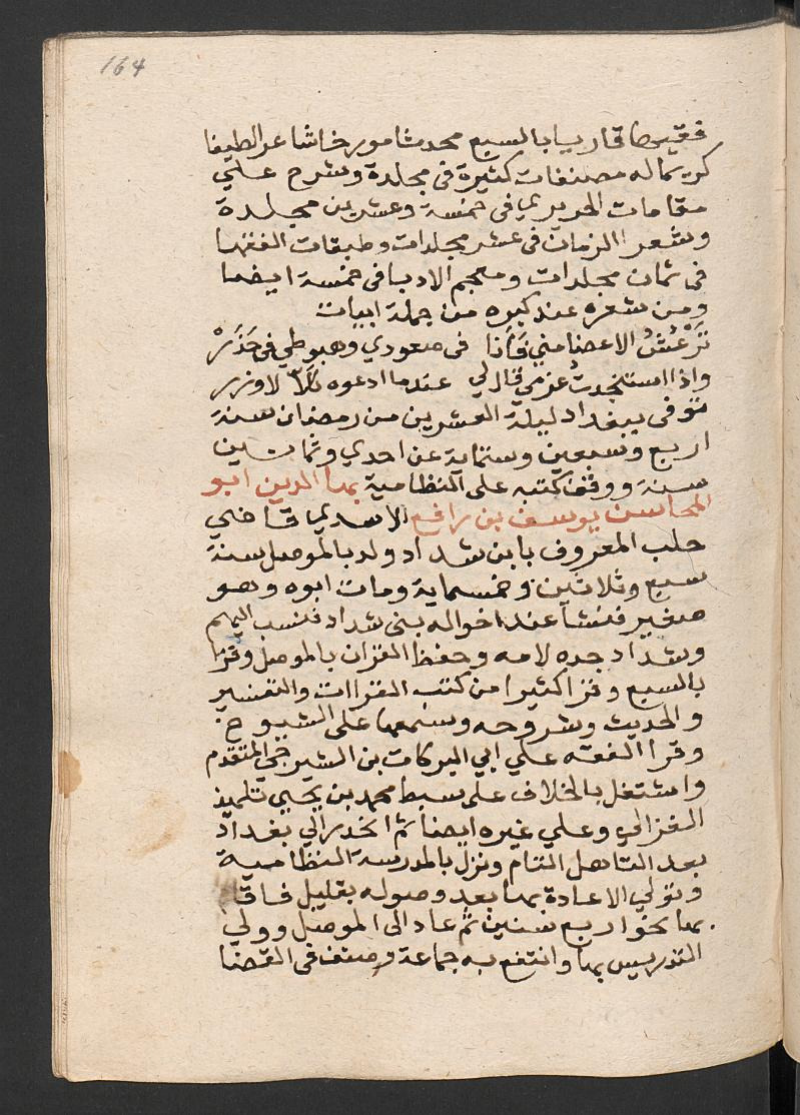 164
فقيها قاريا بالسبع محدثا مورخا شاعرا لطيفا
كريما له مصنفات كثيرة فى مجلدة وشرح علي
مقامات الحريري فى خمسة وعشرين مجلدة
وشعرا الزمان فى عشر مجلدات وطبقات الفقها
فى ثمان مجلدات ومعجم الادبا فى خمسة ايضا
ومن شعره عند كبره من جملة ابيات
تَرْعُشُ الاعضا مني فَأَذا فى صعودي وهبوطي فى حَذَرْ
واذا استنجدتُ عزمي قال لي عندما ادعوه كَلَّا لا وزر
توفى ببغداد ليلة العشرين من رمضان سنة
اربع وسبعين وستماية عن احدي وثمانين
سنة ووقف كتبه على النظامية بها الدين ابو
المحاسن يوسف بن رافع الاسدي قاضي
حلب المعروف بابن شداد ولد بالموصل سنة
سبع وثلاثين وخمسماية ومات ابوه وهو
صغير فنشا عند اخواله بنى شداد فنسب اليهم
وشداد جده لامه وحفظ القران بالموصل وقرا
بالسبع وقرا كثيرا من كتب القراات والتفسير
والحديث وشروحه وسمعها على الشيوخ
وقرا الفقه علي ابي البركات بن الشيرجي المتقدم
واشتغل بالخلاف على سبط محمد بن يحيي تلميذ
الغزالي وعلي غيره ايضا ثم انحدر الي بغداد
بعد التاهل التام ونزل بالمدرسة النظامية
وتولي الاعادة بها بعد وصوله بقليل فاقا
بها نحو اربع سنين ثم عاد الى الموصل وولي
التدريس بها وانتفع به جماعة وصنف فى القضا